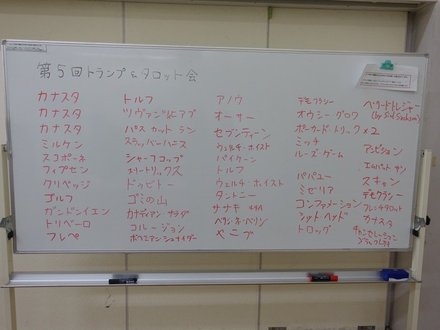 第5回トランプ&タロット会
カナスタ
カナスタ
カナスタ
ミルケン
スコポーネ
フィプセン
クリベッジ
ゴルフ
ガンドンイエン
トリペーロ
フレペ
トルフ
ツヴァンツィヒアブ
パス カット ラン
スラッバーハース
シャーフコップ
スリートリックス
ドゥビトー
ゴミの山
カナディアン・サラダ
コルージョン
ボヘミアンシュナイダー
アノウ
オーサー
セブンティーン
ウェルチ・ホイスト
パイケーン
トルフ
ウェルチ ホイスト
タントニー
ササキ
ベリシネ・ベリン
ヤニブ
デモクラシー
オウシー・グロワ
ポーカード・トリックス×2
ミッチ
ルーズ・ゲーム
パパユー
ミゼリア
コンファメーション
シットヘッド
トロッグ
ベリードトレジャー
(by Sid Sackson)
アンビション
エムパット サン
スキャン
デモクラシー
フレンチタロット
カナスタ